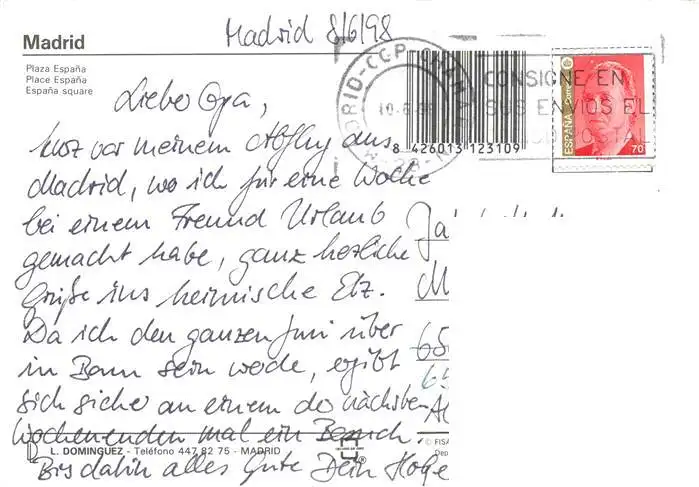 Madrid 8/6/98
Madrid
Plaza España
Place España
España square
MADRID-CCP CHAMA
10.6.98
CONSIGNE EN
SUS ENVIOS EL
POSTAL
8 426013 123109
ESPAÑA Correos
70
Lieber Opa,
kurz vor meinem Abflug aus
Madrid, wo ich für eine Woche
bei einem Freund Urlaub
gemacht habe, ganz herzliche
Grüße ins heimische Etz.
Da ich den ganzen Juni über
in Bonn sein werde, ergibt
sich sicher an einem der nächsten
Wochenenden mal ein Besuch.
Bis dahin alles Gute Dein Holge
Ja
M
65
65
L. DOMINGUEZ - Teléfono 447 82 75 - MADRID
© FISA
Dep